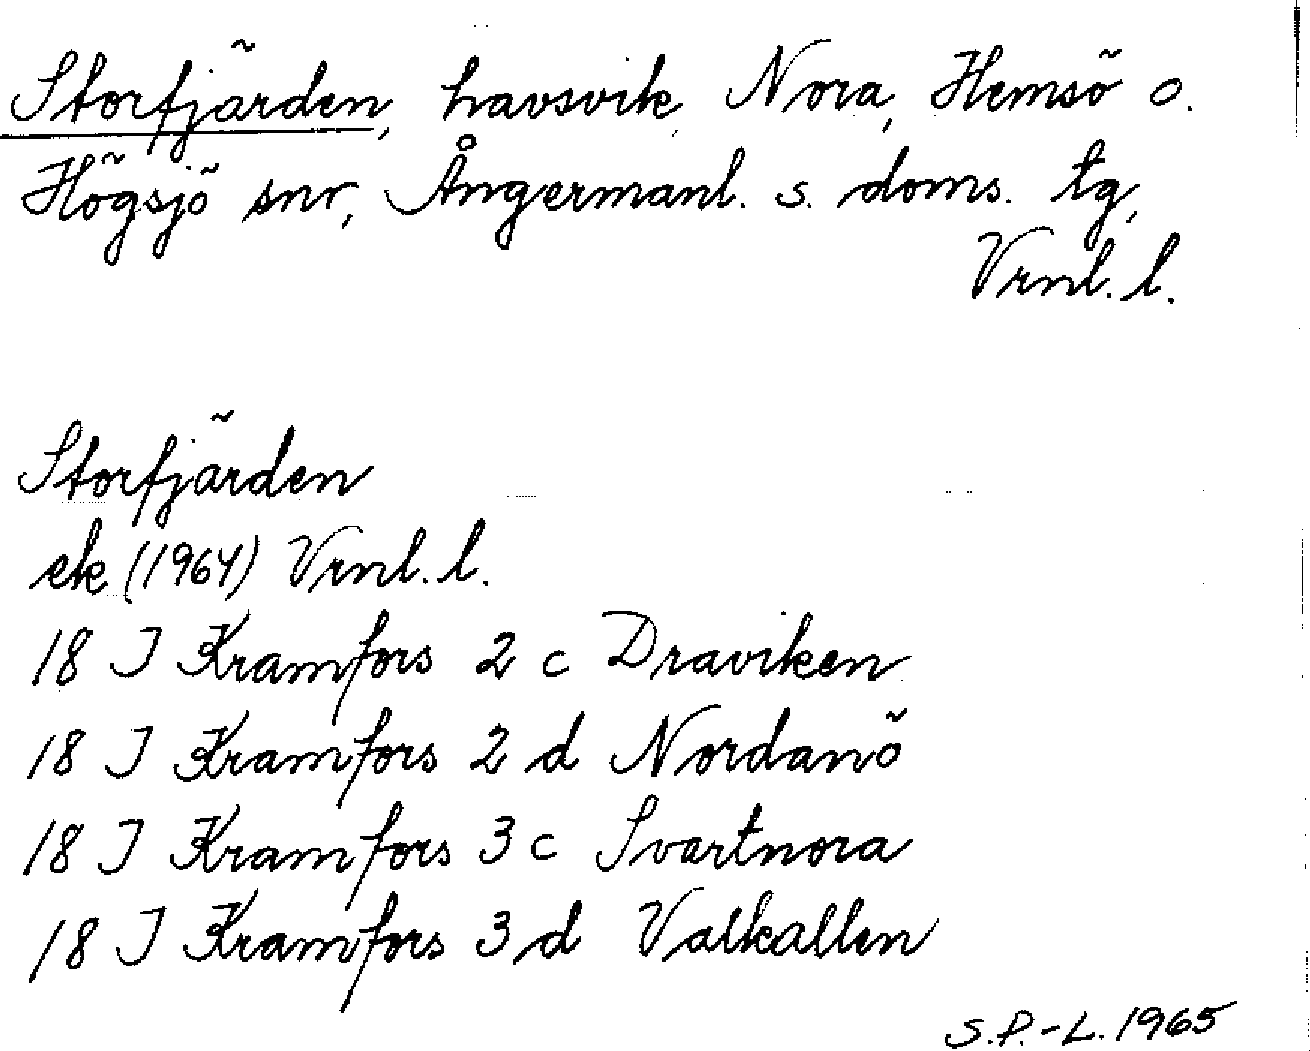 Storfjärden, havsvik, Nora, Hemsö o.
Högsjö snr, Ångermanl. s. doms. tg,
Vrnl. l.
Storfjärden
ek (1964) Vrnl. l.
18 J Kramfors 2 c Draviken
18 J Kramfors 2 d Nordanö
18 J Kramfors 3 c Svartnora
18 J Kramfors 3 d Valkallen
S.P.-L. 1965